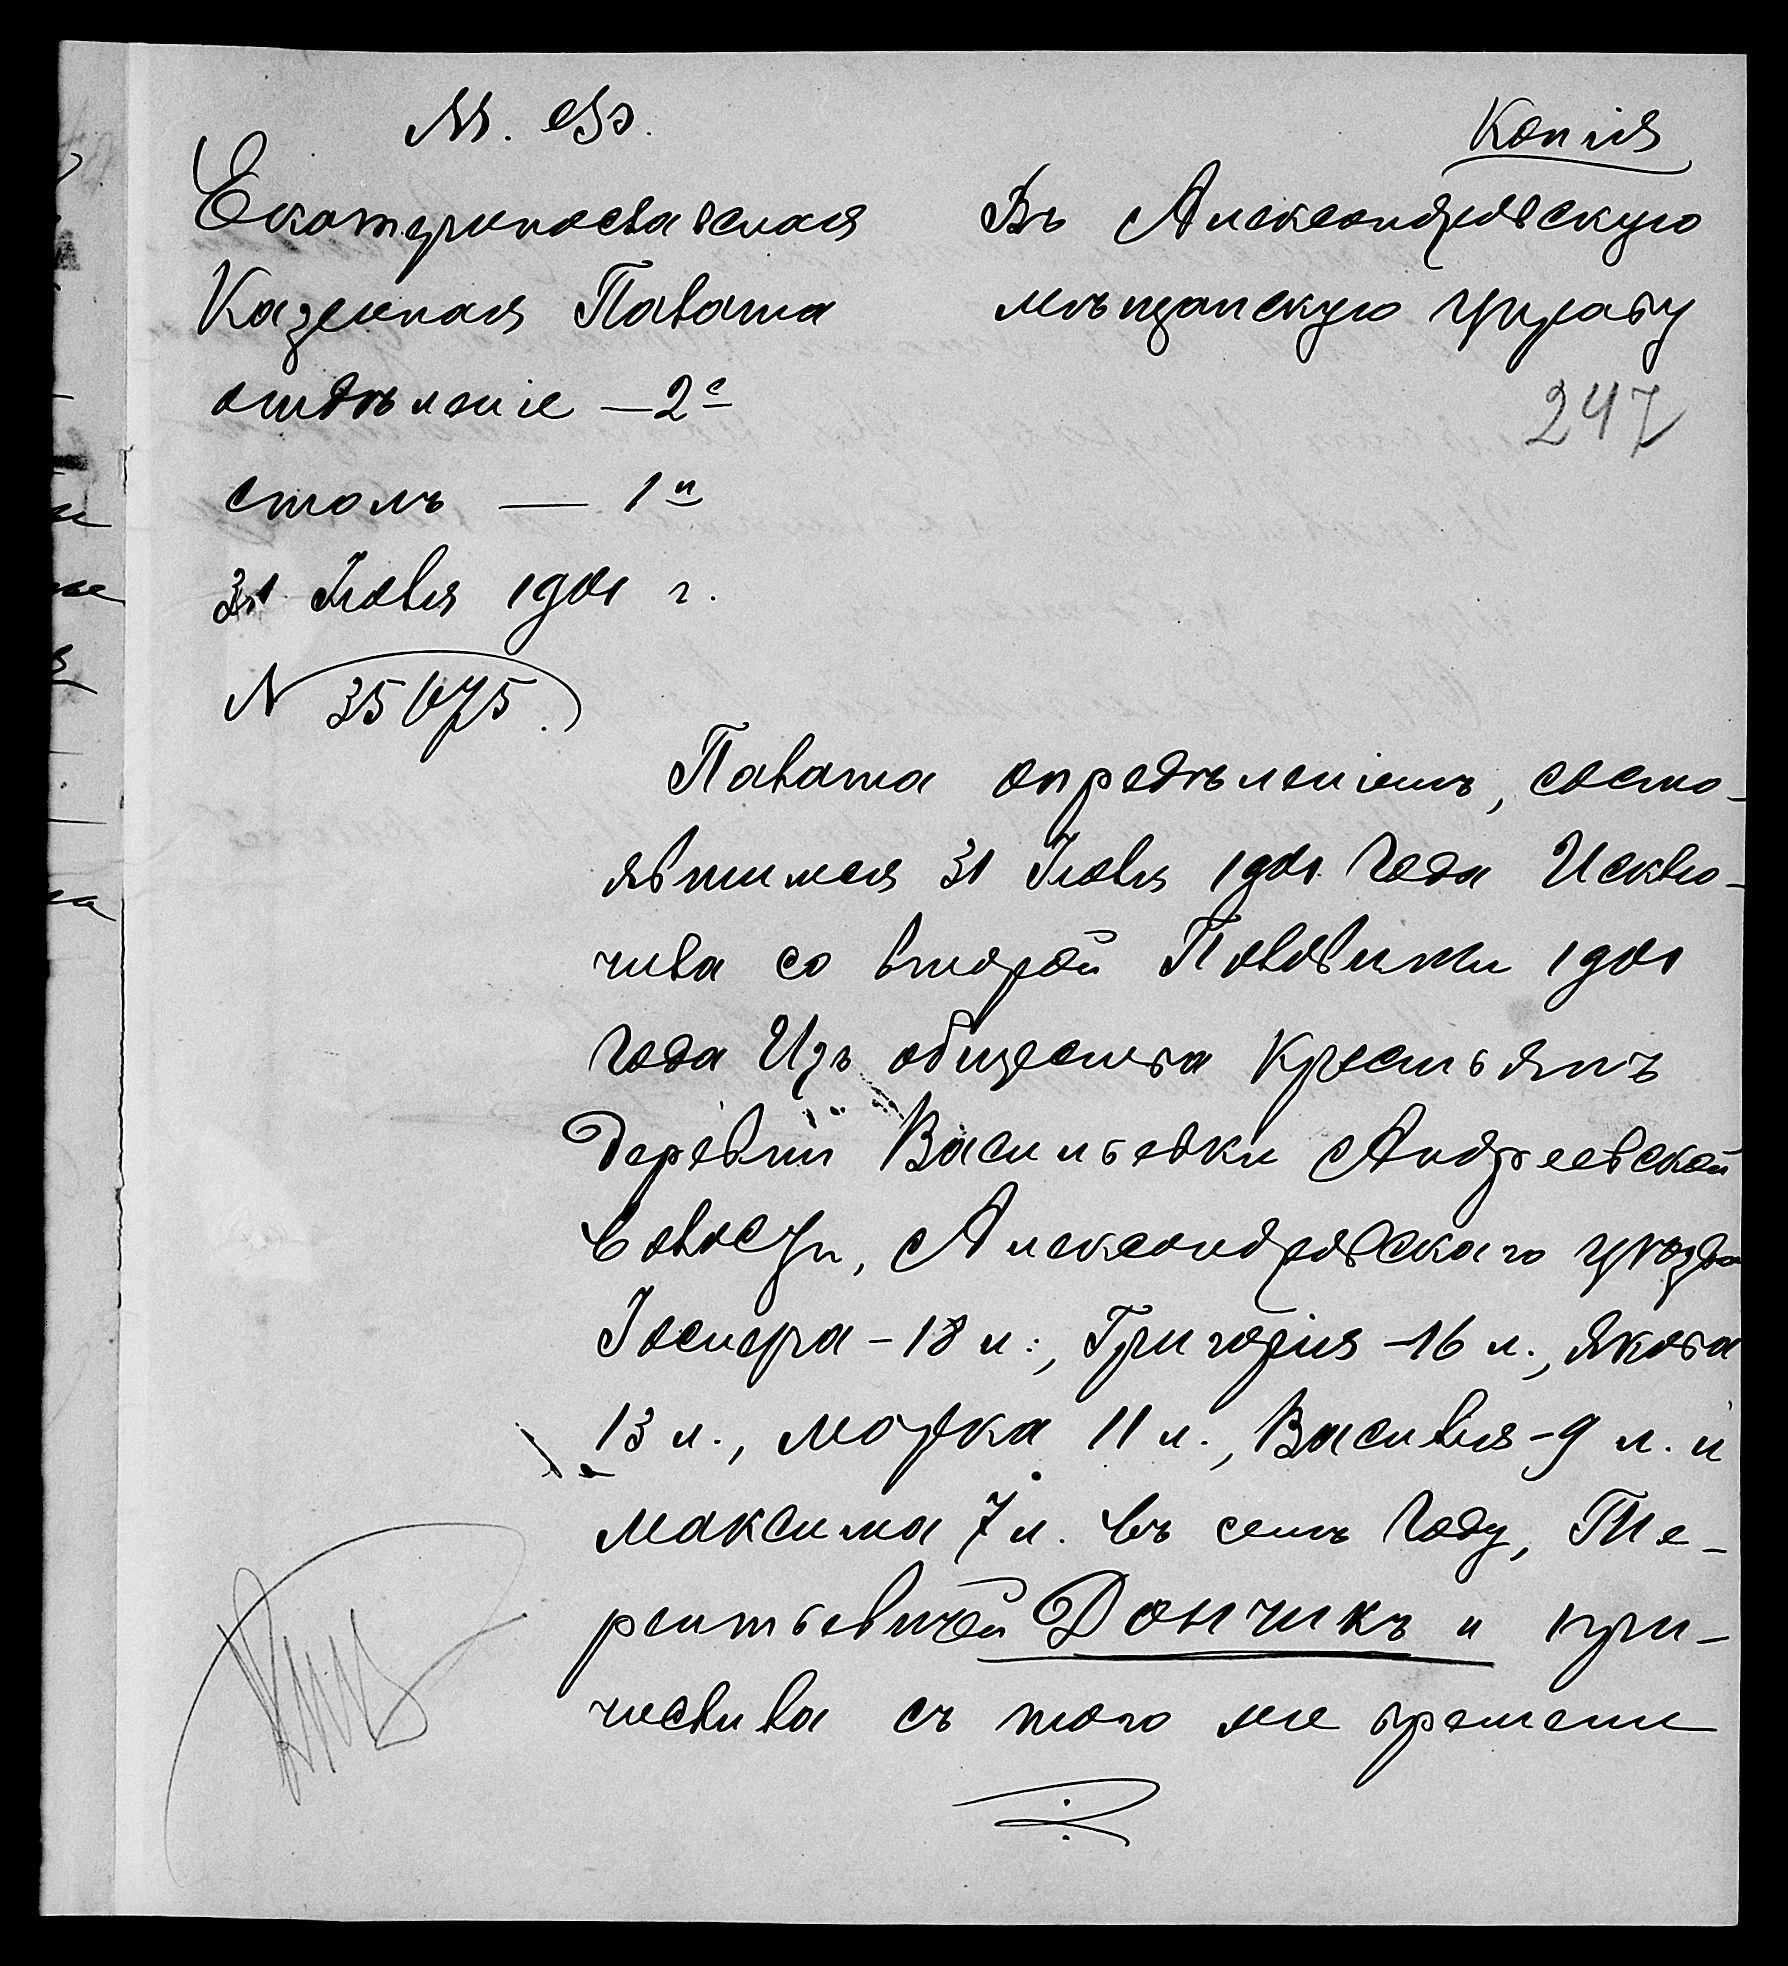 М. Ф.
Копія
Екатеринославская
Казенная Палата
отдѣленіе — 2е
столъ — 1й
31 Іюля 1901 г.
N 35075.
Въ Александровскую
мѣщанскую управу
247
Палата опредѣленіемъ, состо-
явшимся 31 Іюля 1901 года Исклю-
чила со второй Половины 1901
года Изъ общества Крестьянъ
Деревни Васильевки Андреевской
волости, Александровскаго уѣзда
Іосифа - 18 л., Григорія - 16 л., Якова
13 л., Марка 11 л., Василія - 9 л. и
Максима 7 л. въ семъ году, Те-
рентьевичей Дончикъ и при-
числила съ того же времени